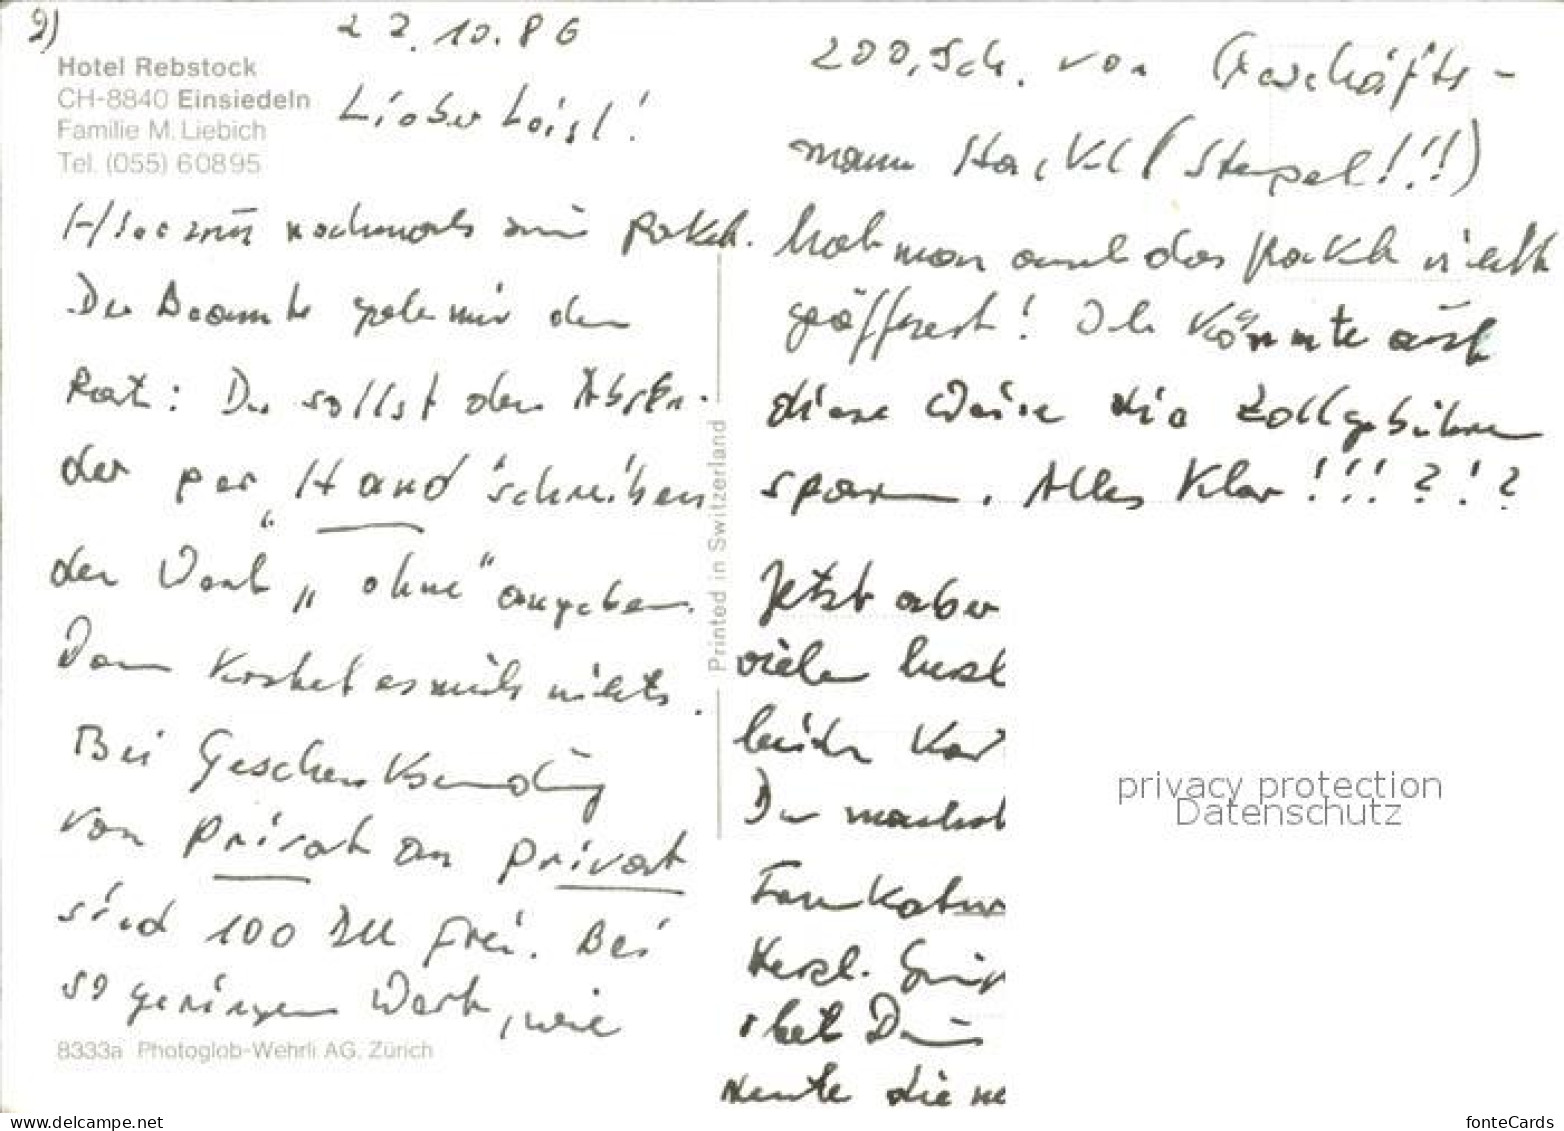 2)
22.10.86
Hotel Rebstock
CH-8840 Einsiedeln
Familie M. Liebich
Tel. (055) 60895
Lieber Loisl!
nochmals Paket.
Der Beamte gab mir den
Rat: Du sollst den Absen-
der per "Hand" schreiben
den Wert „ohne" angeben.
Dann kostet es mich nichts.
Bei Geschenksendung
von Privat an Privat
sind 100 DM frei. Bei
so geringem Wert, wie
8333a Photoglob-Wehrli AG, Zürich
Printed in Switzerland
200,Sch. von Geschäfts-
mann (Stempel!!!)
hat man auch das Paket nicht
geöffnet! Ich könnte auf
diese Weise die Zollgebühren
sparen. Alles Klar!!!?!?
Jetzt aber
vielen herzl
beiden Kar
Du machst
Herzl. Grüß
Heute die
privacy protection
Datenschutz
www.delcampe.net
fonteCards